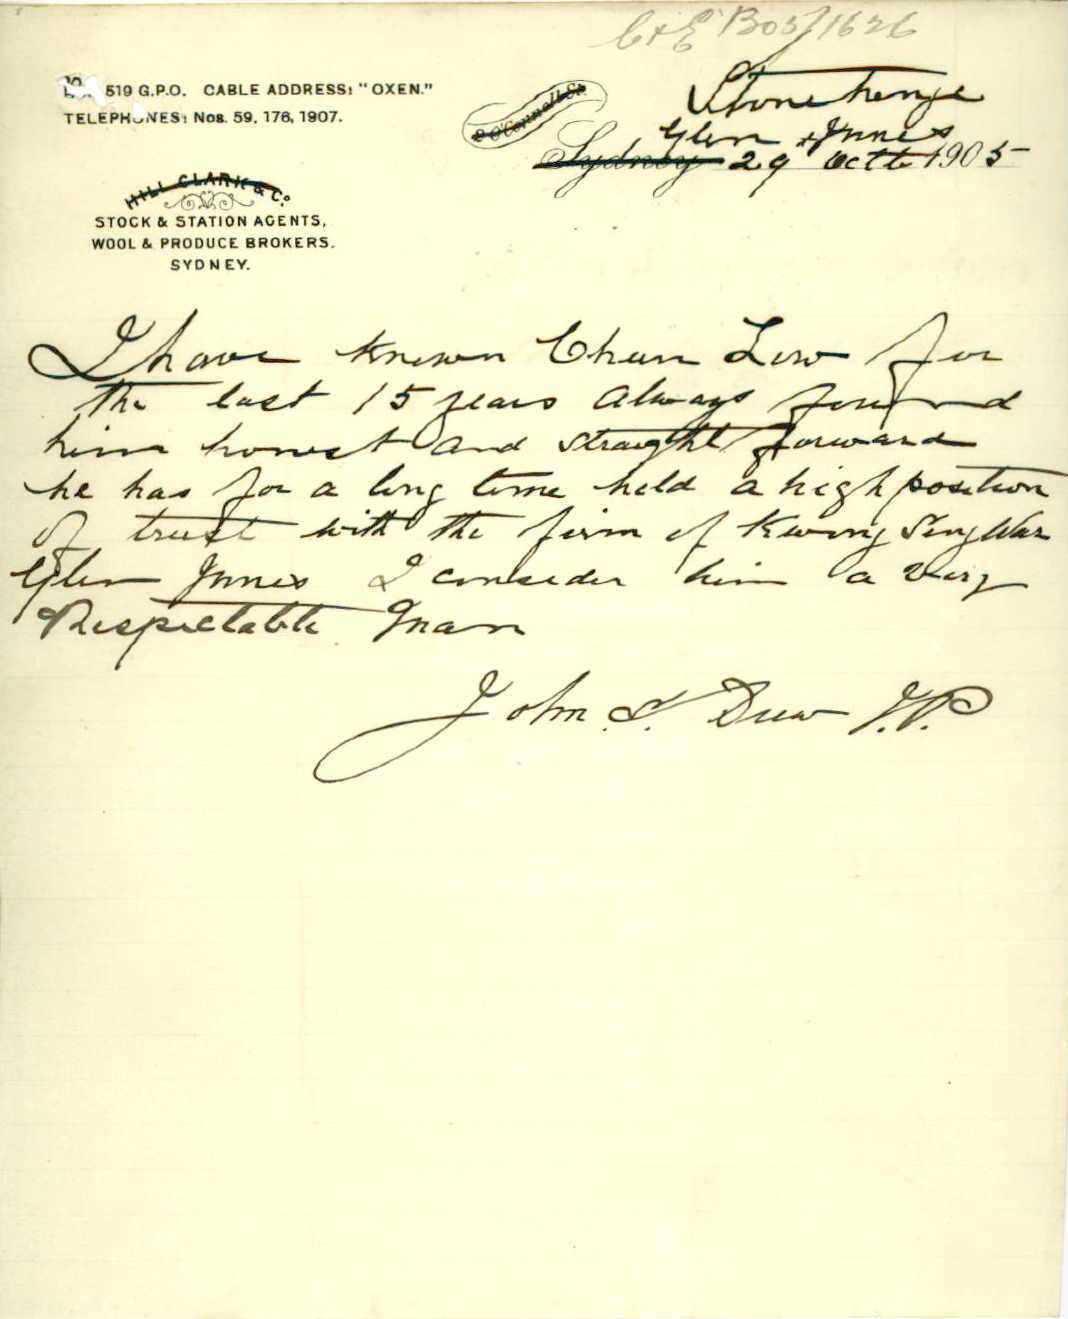 C & E B03/1626
519 G.P.O. CABLE ADDRESS: "OXEN."
TELEPHONES: Nos. 59, 176, 1907.
Stonehenge
O'Connell St.
Glen Innes
Sydney 29 Octb 1905
HILL CLARK & Co.
STOCK & STATION AGENTS,
WOOL & PRODUCE BROKERS.
SYDNEY.
I have known Chun Low for
the last 15 years Always found
him honest and straight forward
he has for a long time held a high position
of trust with the firm of Kwong Sing War
Glen Innes I consider him a very
Respectable Man
John Drew J.P.